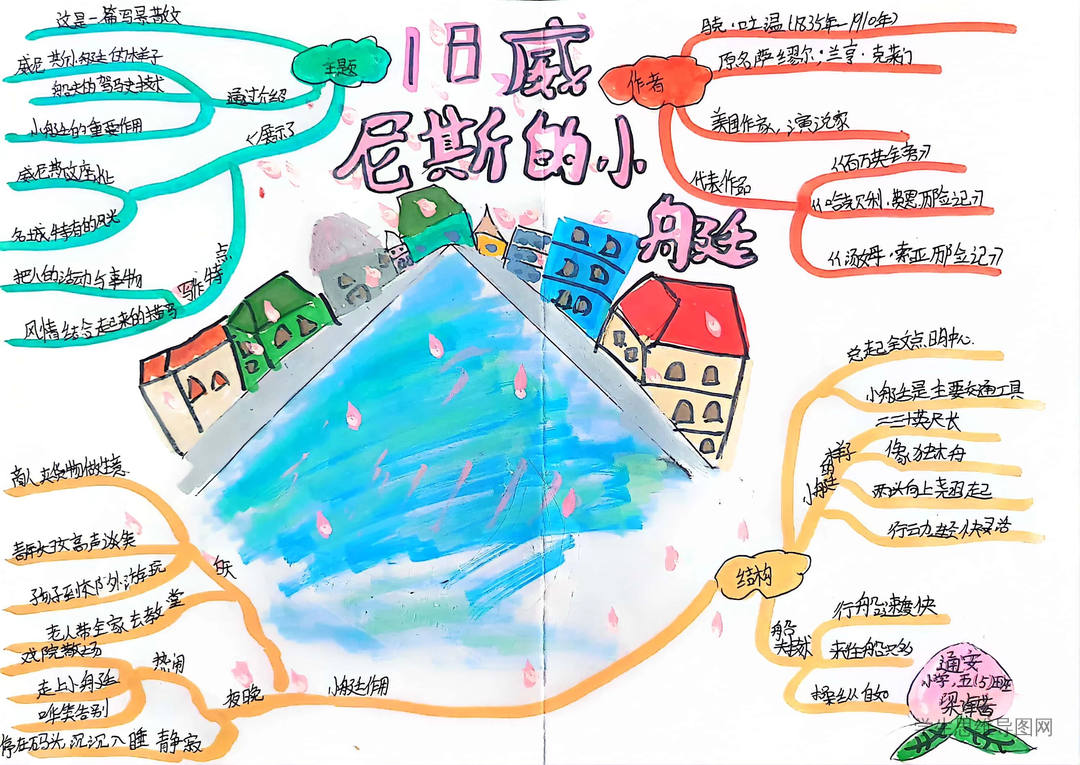 旧威
尼斯的小
舟廷
主题
这是一篇写景散文
通过介绍
威尼斯小船廷的样子
船夫的驾驶技术
小船廷的重要作用
展示了
威尼斯这座水上
名城特有的风光
写作特点
把人的活动与事物
风情结合起来的描写
作者
马克·吐温(1835年-1910年)
原名萨缪尔;兰亨·克莱门
美国作家,演说家
代表作品
《百万英镑》
《哈克贝利·费恩历险记》
《汤姆·索亚历险记》
结构
总起全文点明中心
小船廷是主要交通工具
小船廷的样子
二三十英尺长
像独木舟
两头向上翘起
行动轻快灵活
船夫技术
行船速度快
来往船只多
操纵自如
小船廷作用
白天
商人夹货物做生意
青年女孩高声谈笑
孩子到郊外游玩
老人带全家去教堂
夜晚
热闹
戏院散场
走上小船廷
哗笑告别
静寂
停在码头,沉沉入睡
通安
小学,五(5)班
学生思维导图网